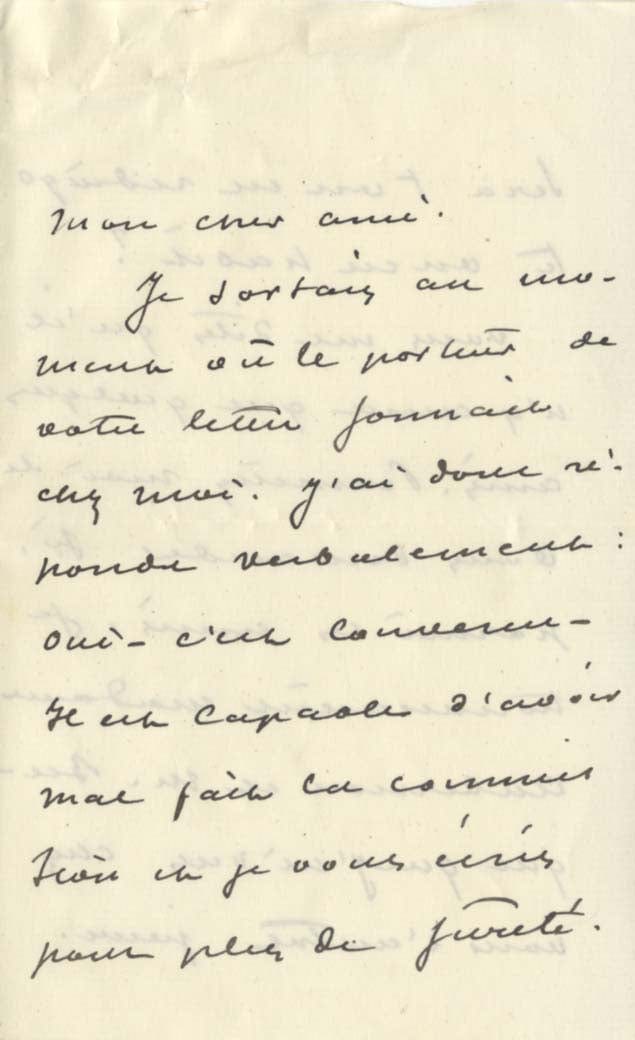 Mon cher ami.
Je sortais au mo-
ment où le porteur de
votre lettre sonnait
chez moi. J'ai donc ré-
pondu verbalement :
oui - c'est convenu -
Il est capable d'avoir
mal fait la commis
sion et je vous écris
pour plus de sureté.